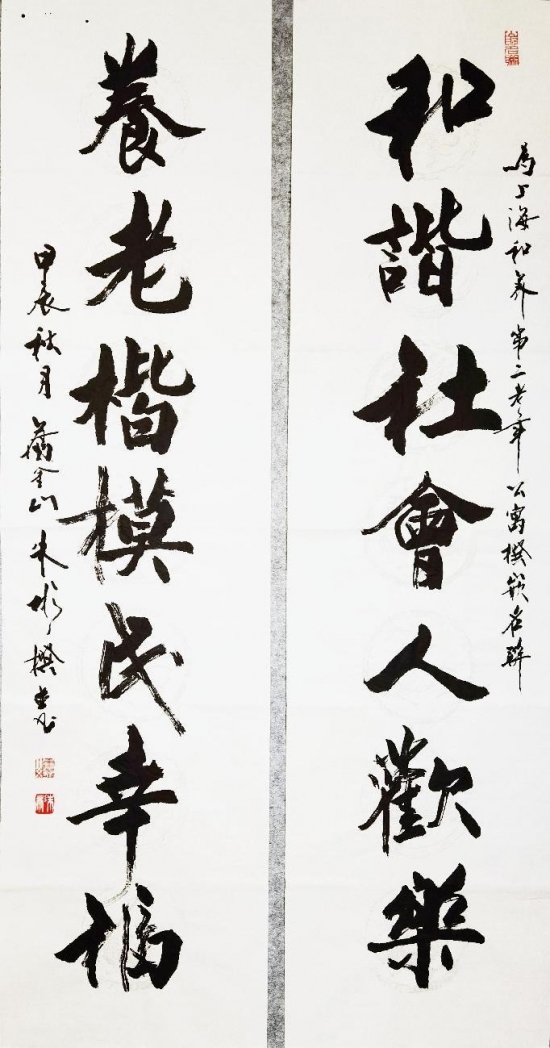 為上海和养第二老年公寓撰嵌名联
和諧社會人歡樂
養老楷模民幸福
甲辰秋月 金山朱 撰書